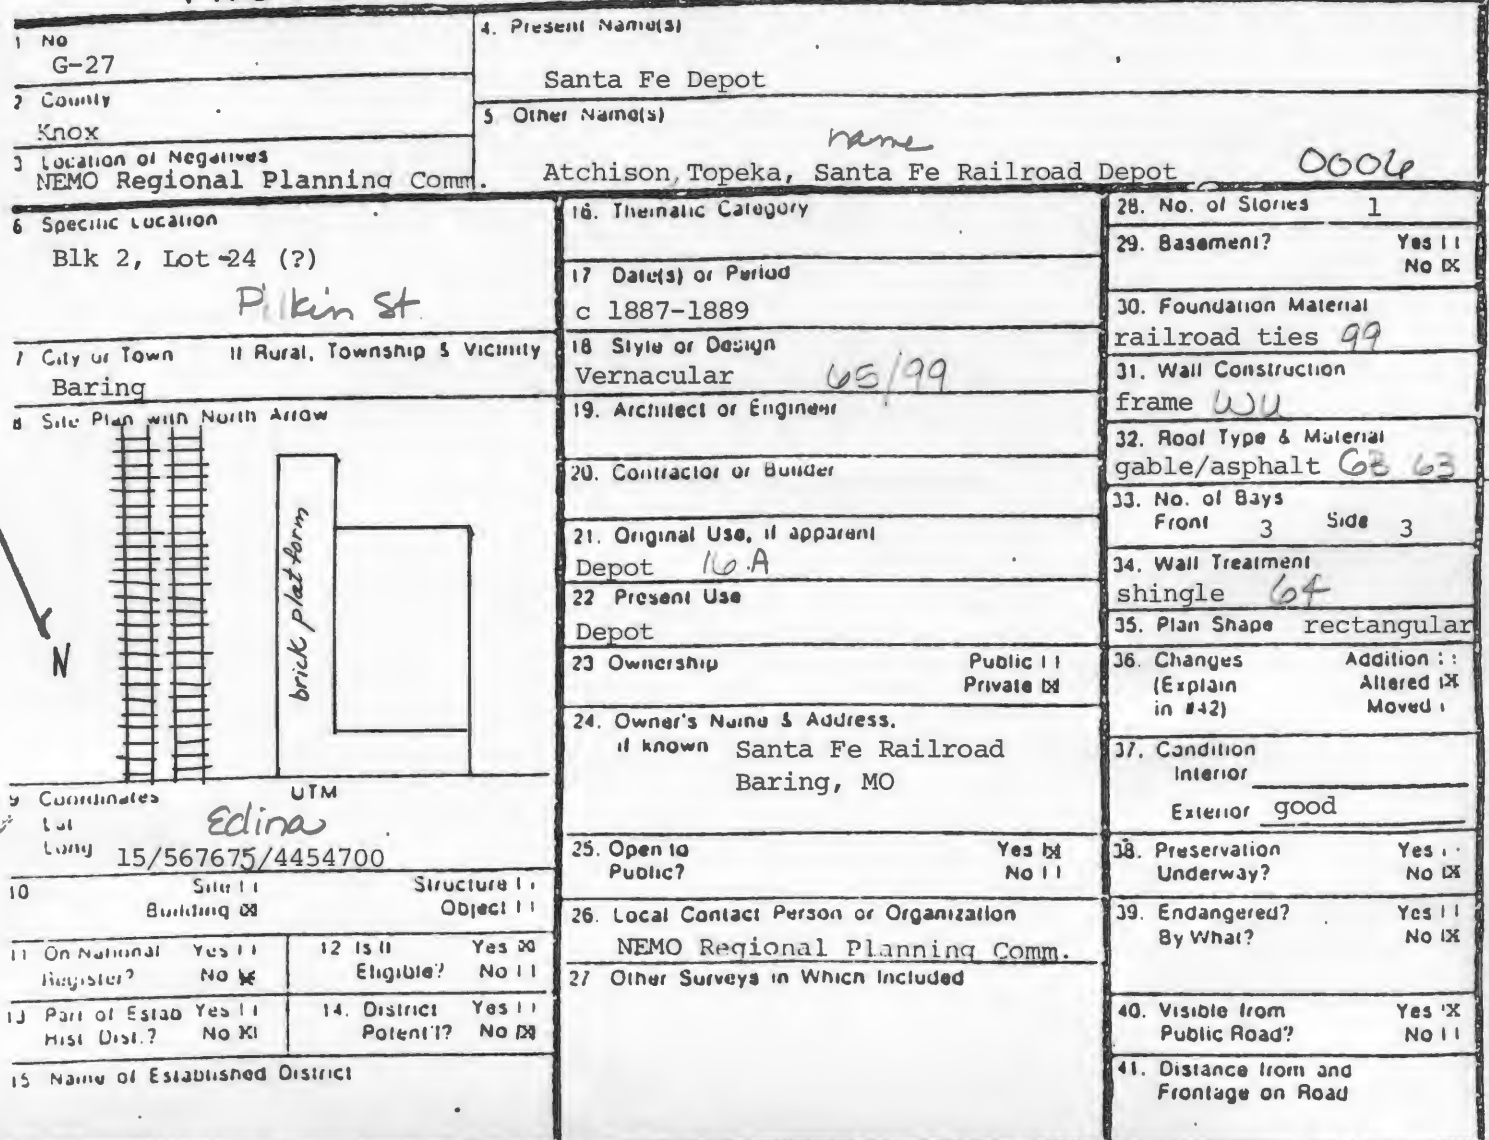 1 No
G-27
2 County
Knox
3 Location of Negatives
NEMO Regional Planning Comm.
4. Present Name(s)
Santa Fe Depot
5 Other Name(s)
name
Atchison, Topeka, Santa Fe Railroad Depot 0006
6 Specific Location
Blk 2, Lot 24 (?)
St
7 City or Town If Rural, Township & Vicinity
Baring
8 Site Plan with North Arrow
brick platform
N
9 Coordinates UTM
Lat
Edina
Long 15/567675/4454700
10 Site Structure
Building [X] Object
11 On National Register? Yes No [X]
12 Is It Eligible? Yes [X] No
13 Part of Estab Hist Dist.? Yes No [X]
14. District Potent'l? Yes No [X]
15 Name of Established District
16. Thematic Category
17 Date(s) or Period
c 1887-1889
18 Style or Design
Vernacular 65/99
19. Architect or Engineer
20. Contractor or Builder
21. Original Use, if apparent
Depot 16 A
22 Present Use
Depot
23 Ownership Public
Private [X]
24. Owner's Name & Address,
if known Santa Fe Railroad
Baring, MO
25. Open to Yes [X]
Public? No
26. Local Contact Person or Organization
NEMO Regional Planning Comm.
27 Other Surveys in Which Included
28. No. of Stories 1
29. Basement? Yes
No [X]
30. Foundation Material
railroad ties 99
31. Wall Construction
frame WU
32. Roof Type & Material
gable/asphalt 63
33. No. of Bays
Front 3 Side 3
34. Wall Treatment
shingle 64
35. Plan Shape rectangular
36. Changes Addition
(Explain Altered [X]
in #42) Moved
37. Condition
Interior
Exterior good
38. Preservation Yes
Underway? No [X]
39. Endangered? Yes
By What? No [X]
40. Visible from Yes [X]
Public Road? No
41. Distance from and
Frontage on Road